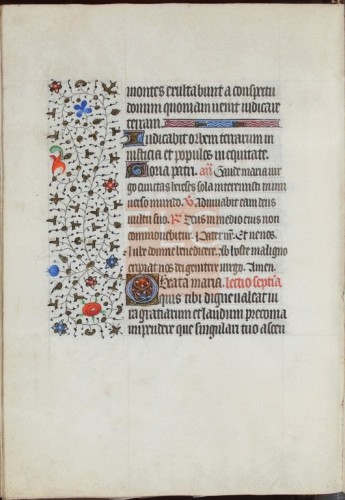 montes exultabunt a conspectu
domini quoniam uenit iudicare
terram.
Iudicabit orbem terrarum in
iusticia et populos in equitate.
Gloria patri. an Gaude maria uir
go cunctas hereses sola interemisti in uni
uerso mundo. V. Adiuuabit eam deus
uultu suo. R. Deus in medio eius non
commouebitur. Pater nr. Et ne nos.
Iube domne benedicere. Ab hoste maligno
eripiat nos dei genitrix uirgo. Amen.
O beata maria. lectio septima
quis tibi digne ualeat iu
ra gratiarum et laudum preconia
impendere que singulari tuo assen